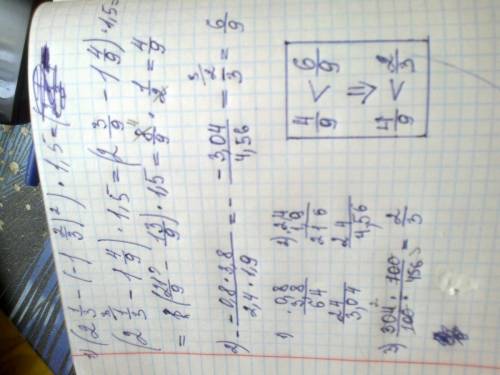 1) (2 1/3 - (-1 2/3)²) · 1,5 = (
(2 1/3 - 1 4/9) · 1,5 = (2 3/9 - 1 4/9) · 1,5 =
= (21/9 - 13/9) · 1,5 = 8/9 · 1/2 = 4/9
2) - -0,8 · 3,8 / 2,4 · 1,9 = - -3,04 / 4,56 = 2/3 = 6/9
1) · 0,8
3,8
64
24
3,04
2) · 2,4
1,9
216
24
4,56
3) 304/100 · 100/456 = 2/3
4/9 < 6/9
⇓
4/9 < 2/3